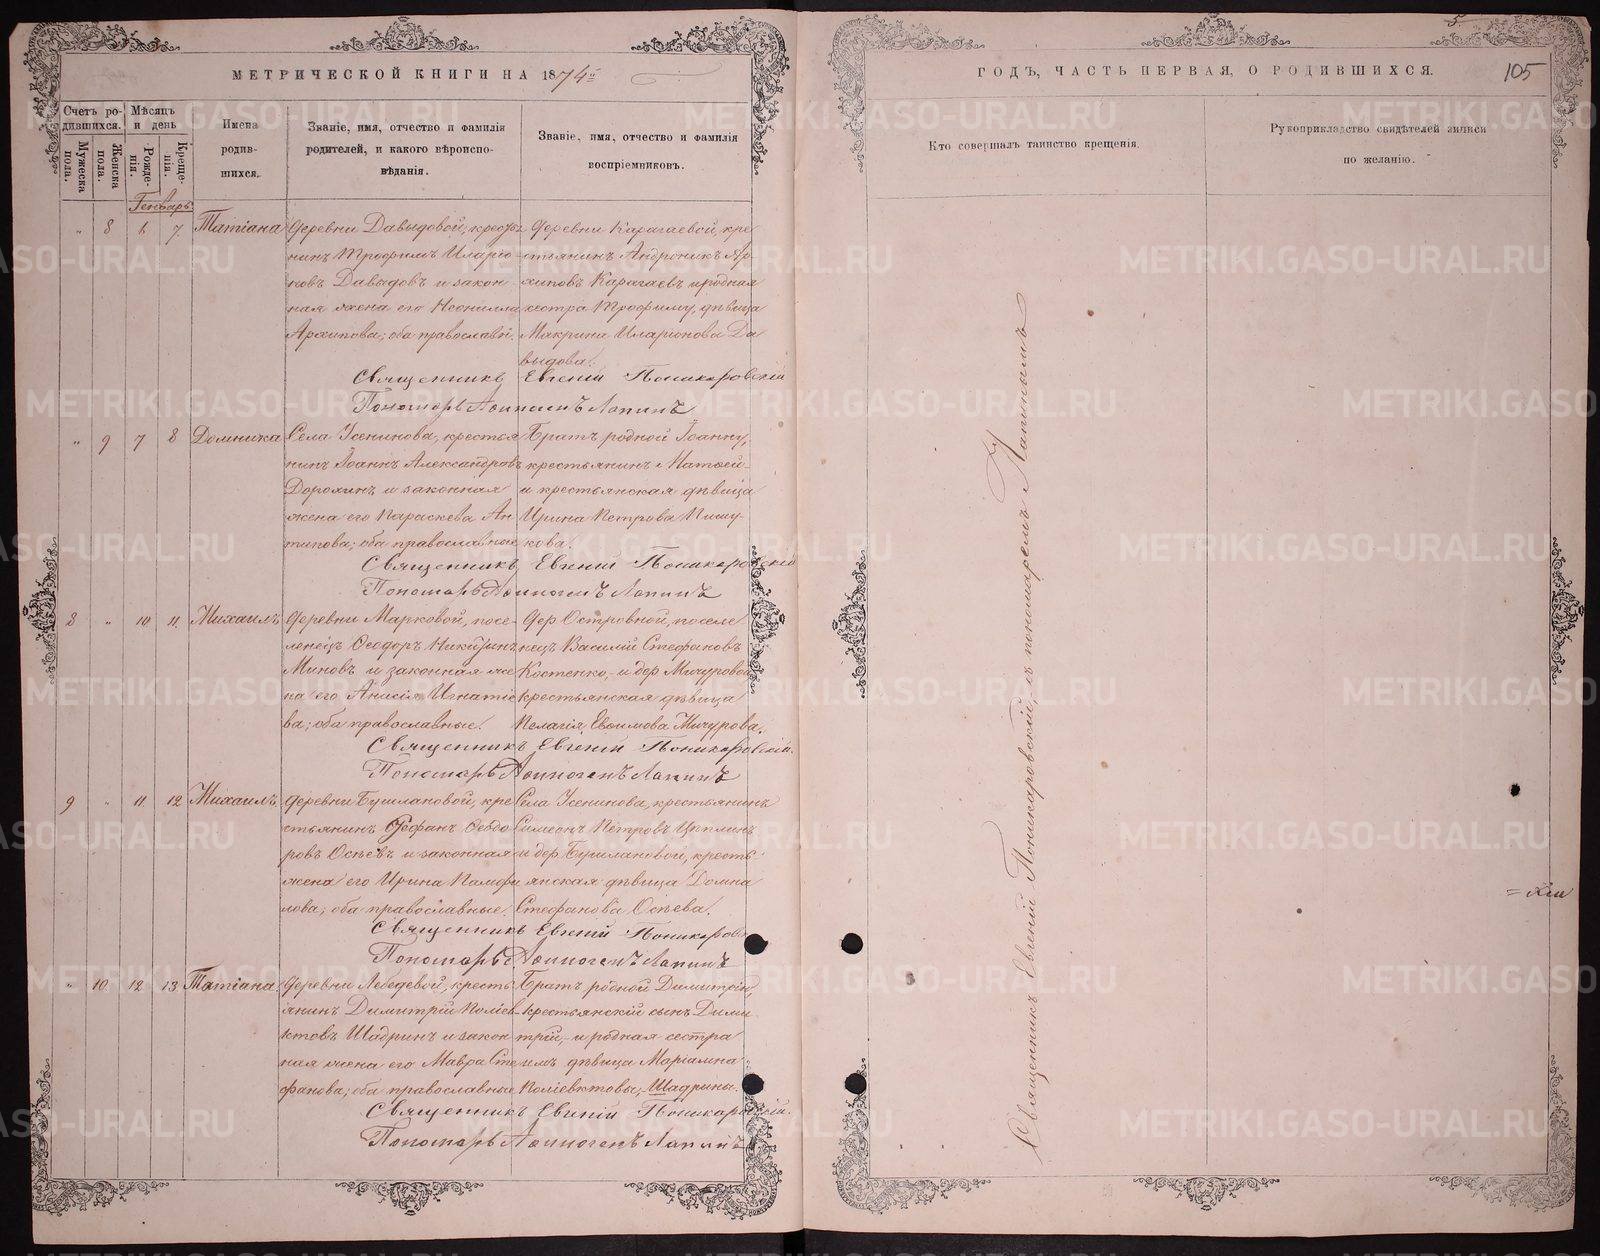 МЕТРИЧЕСКОЙ КНИГИ НА 1874й
Счетъ ро-
дившихся.
Мужеска
пола.
Женска
пола.
Мѣсяцъ
и день
Рожде-
нія.
Креще-
нія.
Имена
родив-
шихся.
Званіе, имя, отчество и фамилія
родителей, и какого вѣроиспо-
вѣданія.
Званіе, имя, отчество и фамилія
воспріемниковъ.
Генварь
" 8 6 7 Татіана
деревни Давыдовой, крестья
нинъ Трофимъ Иларіо-
новъ Давыдовъ и закон-
ная жена его Неонилла
Архипова; оба православн.
деревни Карагаевой, кре
стьянинъ Андроникъ Ар-
хиповъ Карагаевъ и родная
сестра Трофиму, дѣвица
Макрина Иларіонова Да
выдова.
Священникъ Евгеній Поникаровскій
Пономарь Аѳиногенъ Лапинъ
" 9 7 8 Домника
Села Усенинова, крестья
нинъ Іоаннъ Александровъ
Дорохинъ и законная
жена его Параскева Ан
типова; оба православные
Братъ родной Іоанну,
крестьянинъ Матѳей-
и крестьянская дѣвица
Ирина Петрова Пишу-
кова.
Священникъ Евгеній Поникаровскій
Пономарь Аѳиногенъ Лапинъ
8 " 10 11 Михаилъ
деревни Марковой, посе-
ленецъ Ѳеодоръ Никитинъ
Миновъ и законная же
на его Анисія Игнатіе
ва; оба православные.
дер Островной, поселе
нецъ Василій Стефановъ
Костенко, и дер Мичуровой
крестьянская дѣвица
Пелагія Евѳимова Мичурова.
Священникъ Евгеній Поникаровскій.
Пономарь Аѳиногенъ Лапинъ
9 " 11 12 Михаилъ
деревни Бушлановой, кре
стьянинъ Стефанъ Ѳеодо
ровъ Осѣевъ и законная
жена его Ирина Памфи
лова; оба православные.
Села Усенинова, крестьянинъ
Симеонъ Петровъ Цыплинъ
и дер Бушлановой, кресть-
янская дѣвица Домна
Стефанова Осѣева.
Священникъ Евгеній Поникаровс
Пономарь Аѳиногенъ Лапинъ
" 10 12 13 Татіана
деревни Лебедевой, кресть
янинъ Димитрій Поліев-
ктовъ Шадринъ и закон
ная жена его Мавра Сте
фанова; оба православные
Братъ родной Димитрію,
крестьянскій сынъ Дими
трій, и родная сестра
имъ дѣвица Маріамна
Поліевктовы, Шадрины.
Священникъ Евгеній Поникаровскій.
Пономарь Аѳиногенъ Лапинъ
5.
ГОДЪ, ЧАСТЬ ПЕРВАЯ, О РОДИВШИХСЯ.
105
Кто совершалъ таинство крещенія.
Рукоприкладство свидѣтелей записи
по желанію.
Священникъ Евгеній Поникаровскій, съ пономаремъ Лапинымъ
METRIKI.GASO-URAL.RU